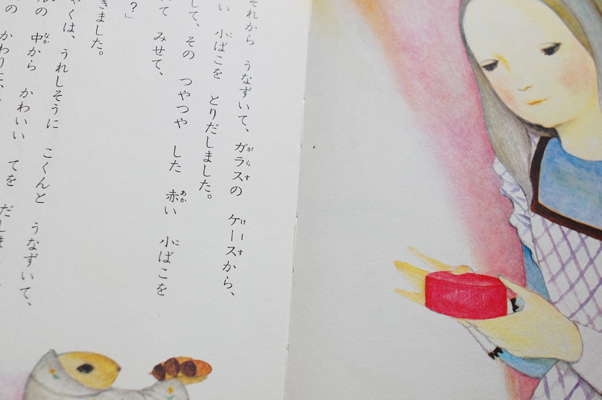 それから うなずいて、ガラスの ケースから、
い 小ばこを とりだしました。
して、その つやつや した 赤い 小ばこを
て みせて、
？」
きました。
くは、うれしそうに こくんと うなずいて、
の 中から かわいい てを だしま
の かわりに、